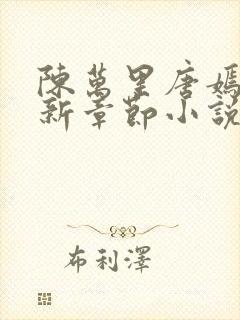 陳萬里唐嫣
新章節小說
布利澤